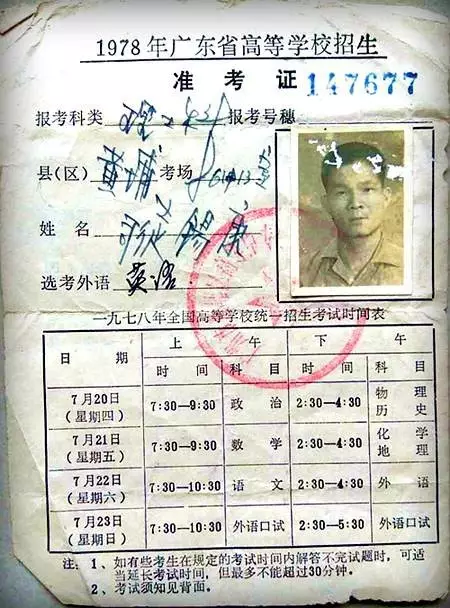 1978年广东省高等学校招生
准考证 147677
报考科类 理工 报考号穗
县(区) 黄埔 考场
姓名
选考外语 英语
一九七八年全国高等学校统一招生考试时间表
日期 上午 下午
时间 科目 时间 科目
7月20日(星期四) 7:30—9:30 政治 2:30—4:30 物理 历史
7月21日(星期五) 7:30—9:30 数学 2:30—4:30 化学 地理
7月22日(星期六) 7:30—10:30 语文 2:30—4:30 外语
7月23日(星期日) 7:30—10:30 外语口试 2:30—5:30 外语口试
注:1、如有些考生在规定的考试时间内解答不完试题时,可适
当延长考试时间,但最多不能超过30分钟。
2、考试须知见背面。